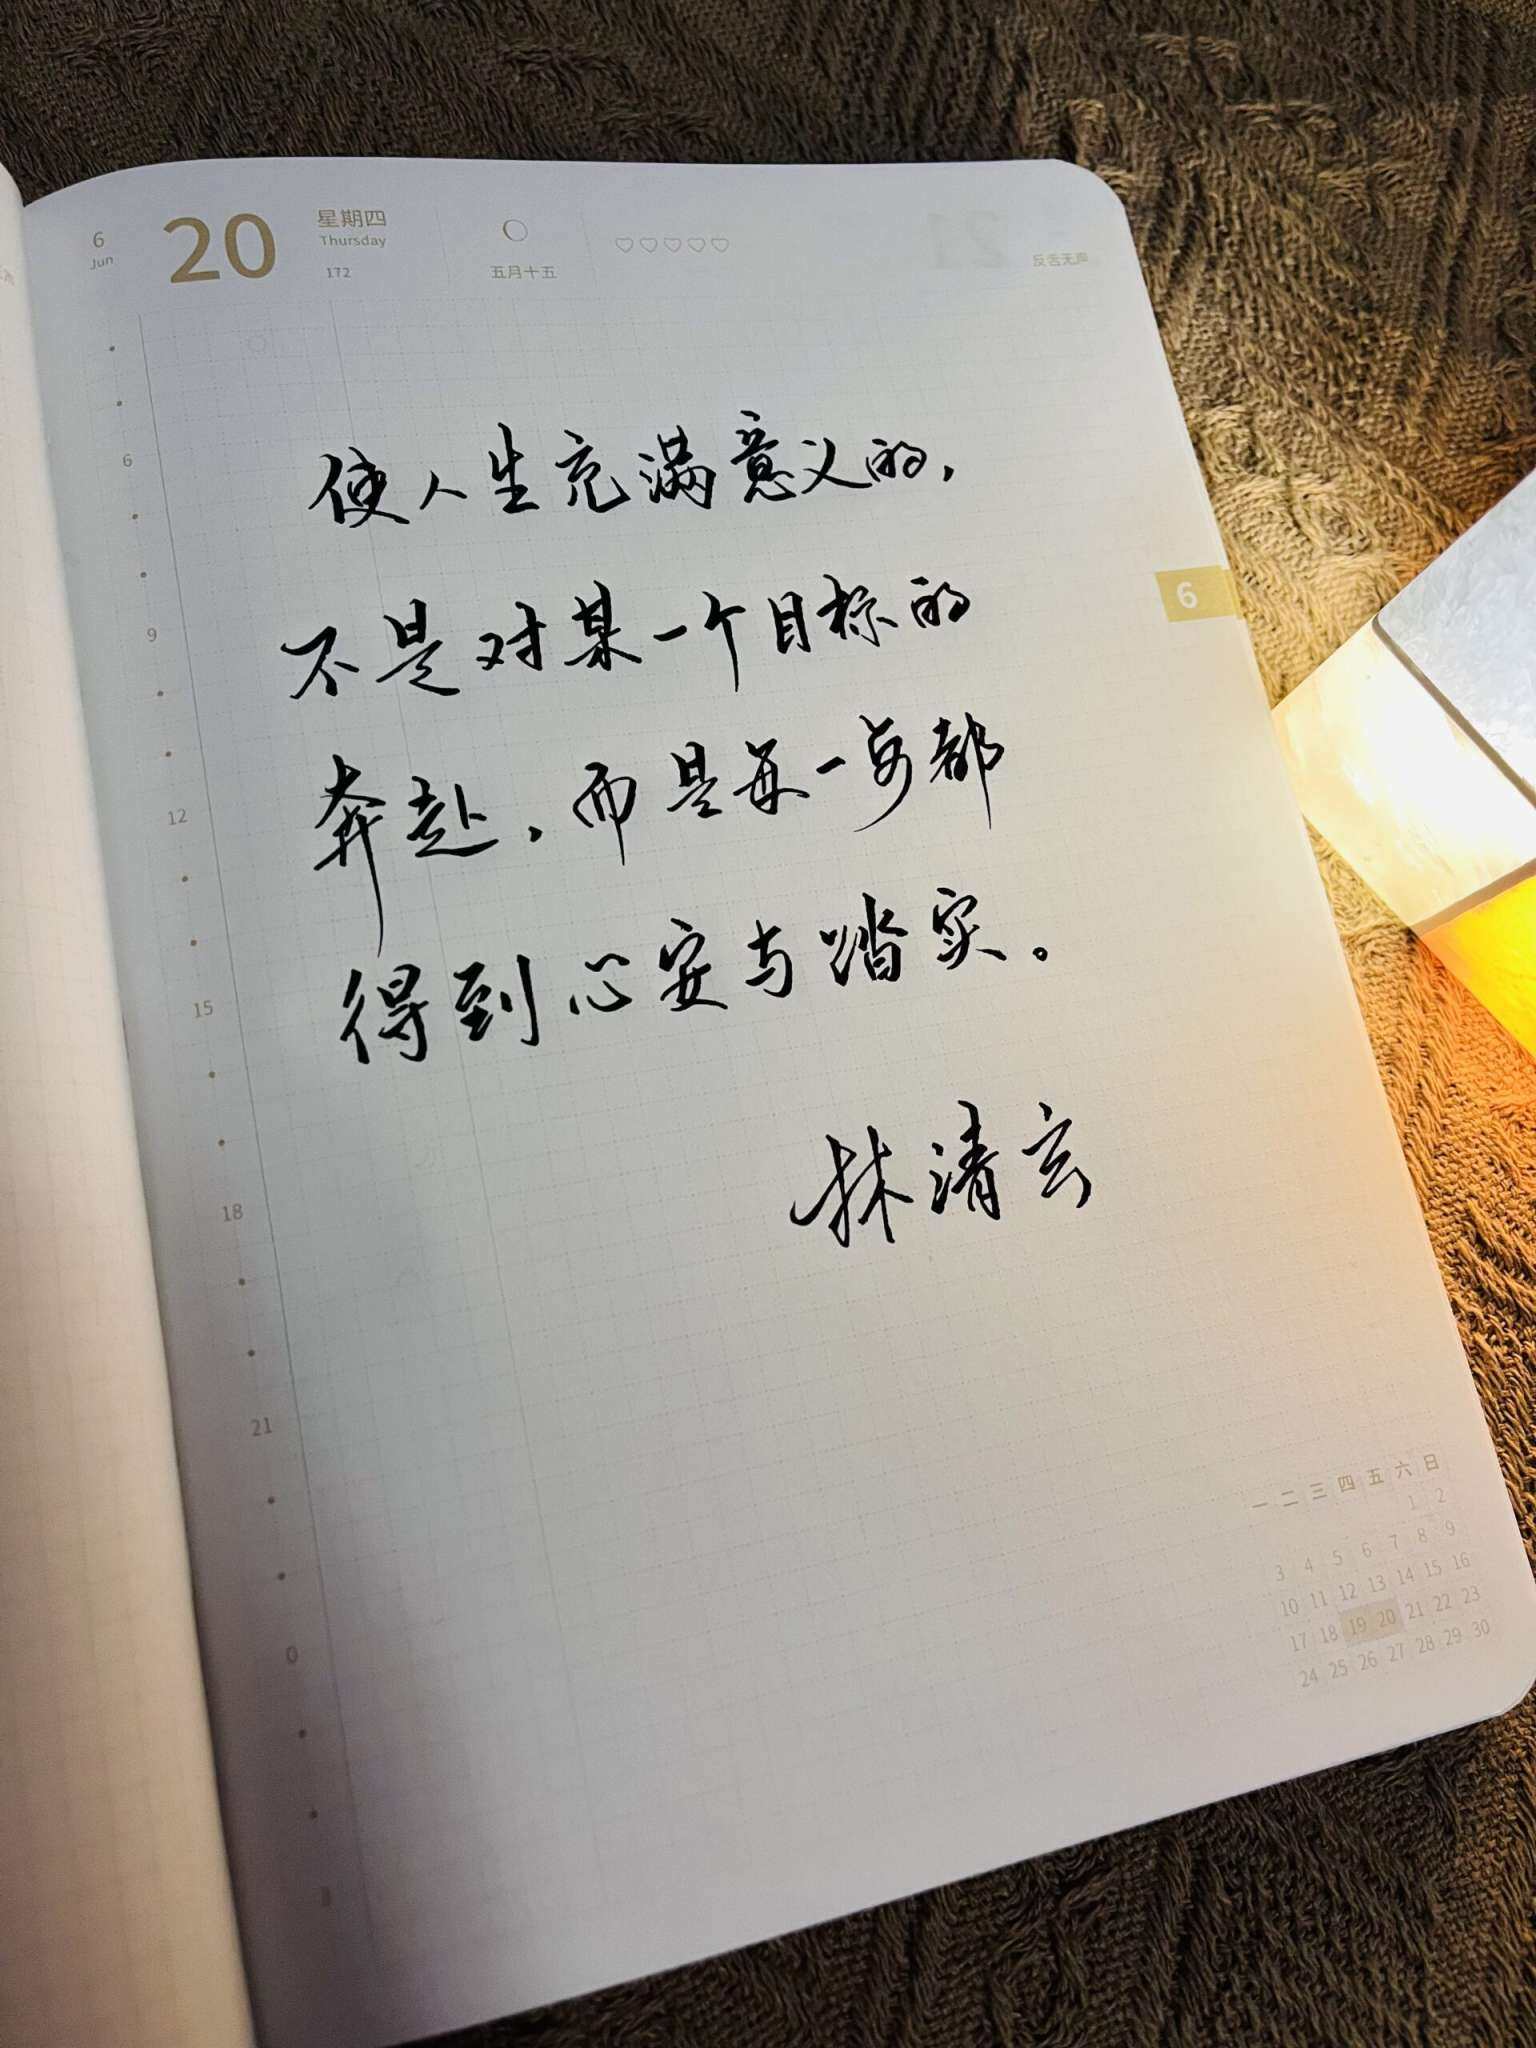 6
Jun
20
星期四
Thursday
172
五月十五
反舌无声
使人生充满意义的,
不是对某一个目标的
奔赴,而是每一步都
得到心安与踏实。
林清玄
6
9
12
15
18
21
0
3
6
一 二 三 四 五 六 日
1 2
3 4 5 6 7 8 9
10 11 12 13 14 15 16
17 18 19 20 21 22 23
24 25 26 27 28 29 30